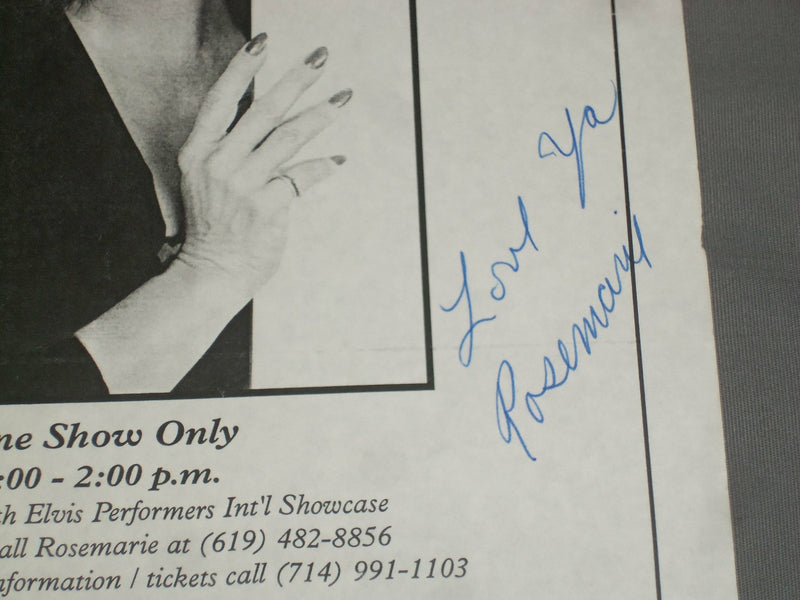 Love Ya
Rosemarie
ne Show Only
:00 - 2:00 p.m.
th Elvis Performers Int'l Showcase
all Rosemarie at (619) 482-8856
nformation / tickets call (714) 991-1103